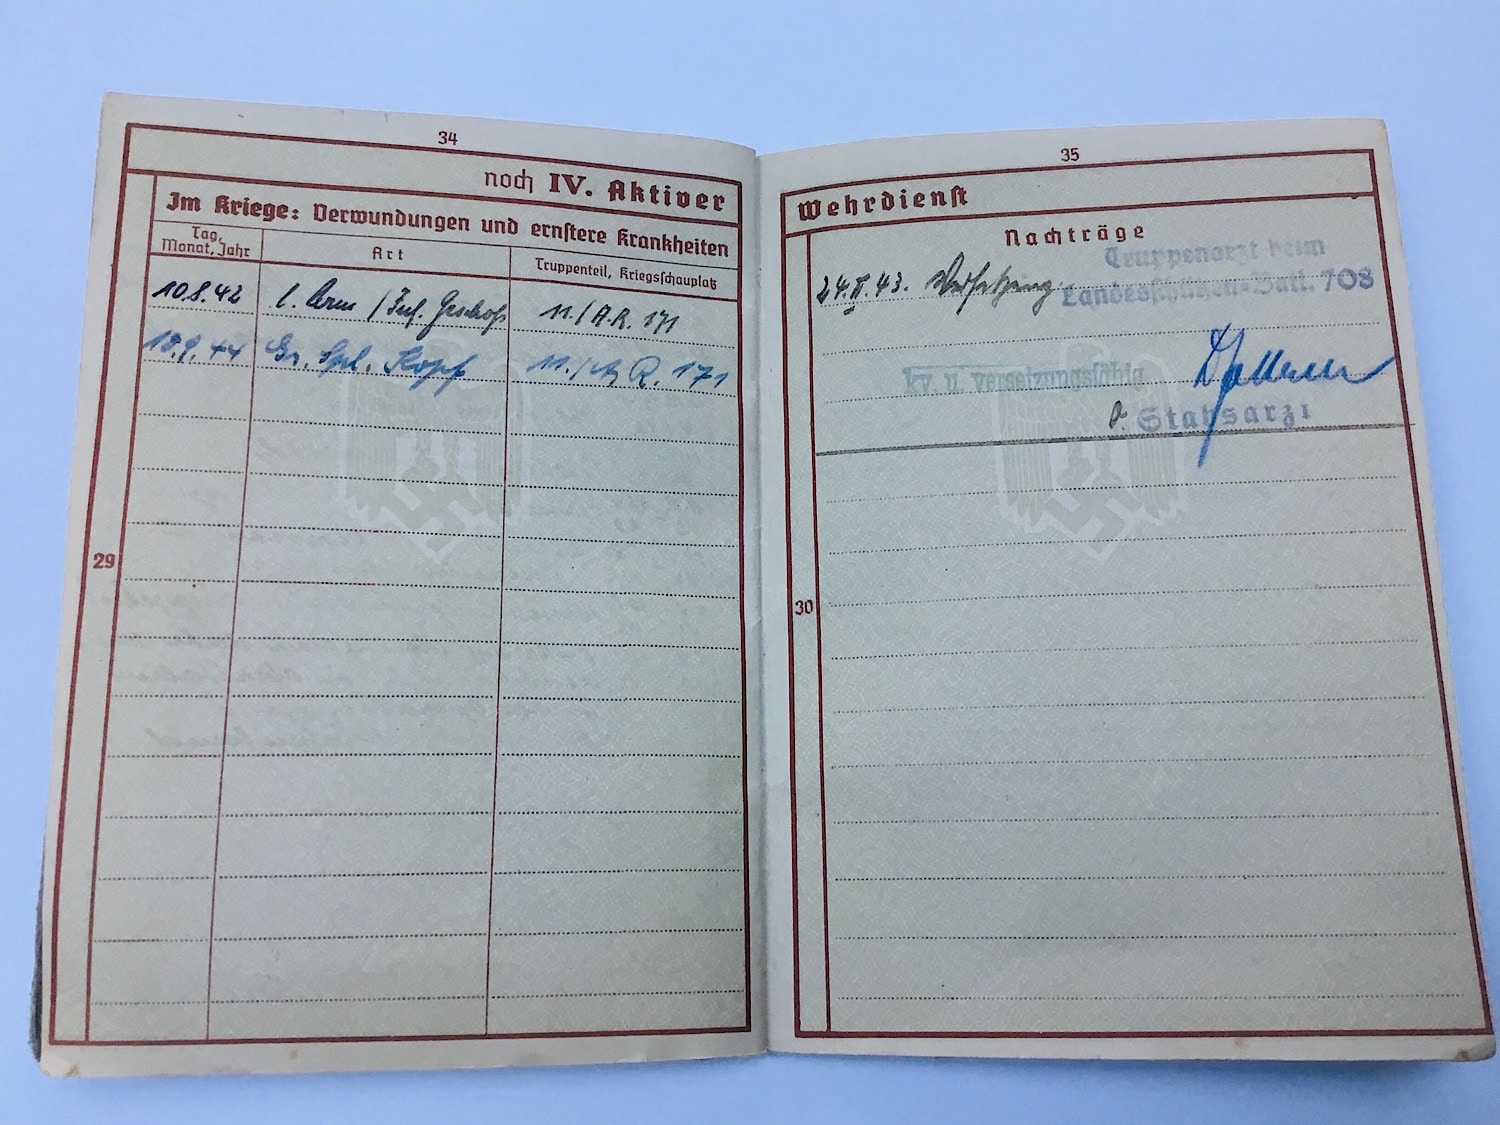 34
noch IV. Aktiver
Im Kriege: Verwundungen und ernstere Krankheiten
Tag, Monat, Jahr
Art
Truppenteil, Kriegsschauplatz
10.8.42 l. Arm / Inf. Geschoß 11./A.R. 171
18.9.44 Gr. Spl. Kopf 11./A.R. 171
29
35
Wehrdienst
Nachträge
Truppenarzt beim
Landesschützen-Batl. 708
24.II.43. Versetzung
kv. u. versetzungsfähig
Stabsarzt
30